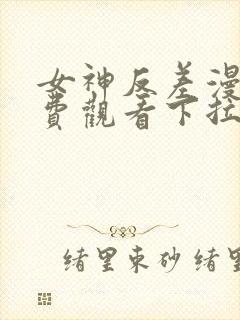 女神反差漫
費觀看下拉
緒里束砂 緒里